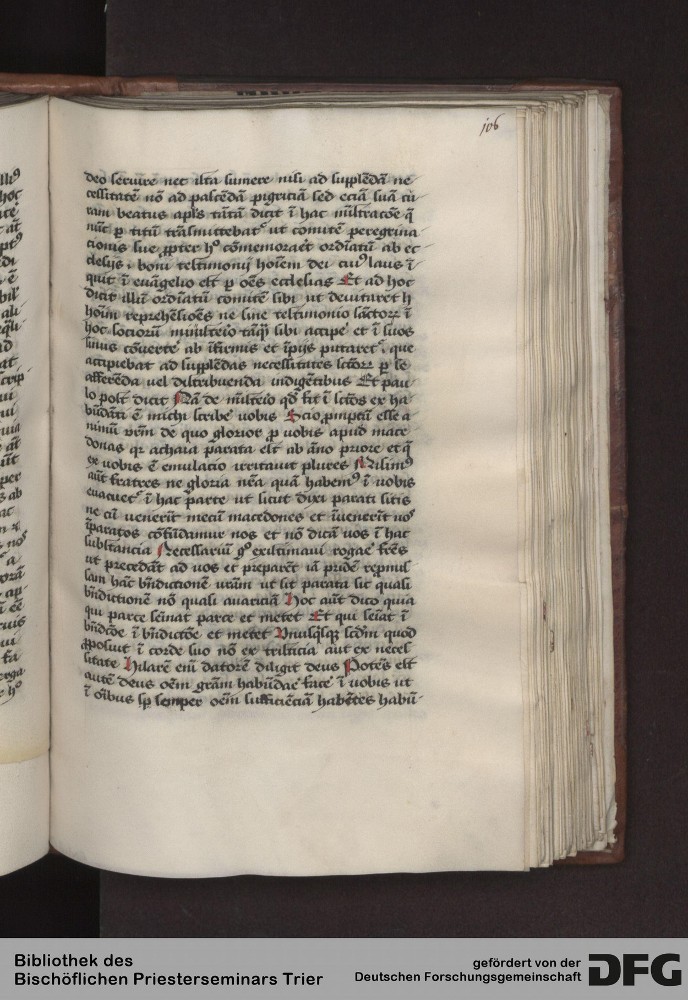 106
deo seruire nec ista sumere nisi ad supplēdā ne
cessitatē nō ad pascēdā pigriciā sed eciā suā cu
ram beatus apls tātā dicit ī hac mīstracōe q̄
nūc p titū trāsmittebat᷑ ut comitē peregrina
cionis sue ꝓpter hͦ cōmemoraret ordīatū ab ec
clesijs boni testimonij hoīem dei cuiꝰ laus ī
quit ī euāgelio est p oēs ecclesias Et ad hoc
dicit illū ordīatū comitē sibi ut deuitaret h
hoīm reprehēsiōes ne sine testimonio sāctorꝝ ī
hoc sociorū misterio tāqͣ sibi accipe et ī suos
sinus cōuerte ab īfirmis et īpijs putaret᷑ que
accipiebat ad supplēdas necessitates sctorꝝ p se
afferēda uel distribuenda indigētibus Et pau
lo post dicit Nā de misterio qd̄ fit ī sctōs ex ha
būdāti ē michi scribe uobis Scio ꝓmptū esse a
nimū vrm̄ de quo glorior ꝓ uobis apud mace
donas qr achaia parata est ab āno priore et q̄
ex uobis ē emulacio irritauit plures Misimꝰ
aūt fratres ne gloria nr̄a quā habemꝰ ī uobis
euacuet᷑ ī hac parte ut sicut dixi parati sitis
ne cū uenerīt mecū macedones et īuenerīt uos
īparatos cōfūdamur nos et nō dicā uos ī hac
substancia Necessariū gͦ existimaui rogare fr̄es
ut precedāt ad uos et preparēt iā pridē repmis
sam hāc bn̄dictionē vrām ut sit parata sic quasi
bn̄dictionē nō quasi auariciā Hoc aūt dico quia
qui parce seīnat parce et metet Et qui seīat ī
bn̄dcōe ī bn̄dictōe et metet Vnusqͥsqꝫ scdm̄ quod
ꝓposuit ī corde suo nō ex tristicia aut ex neces
sitate Hilarē enī datorē diligit deus Potēs est
autē deus oēm grām habūdare facere ī uobis ut
ī oībus sp semper oēm sufficiēciā habētes habū
Bibliothek des
Bischöflichen Priesterseminars Trier
gefördert von der
Deutschen Forschungsgemeinschaft
DFG